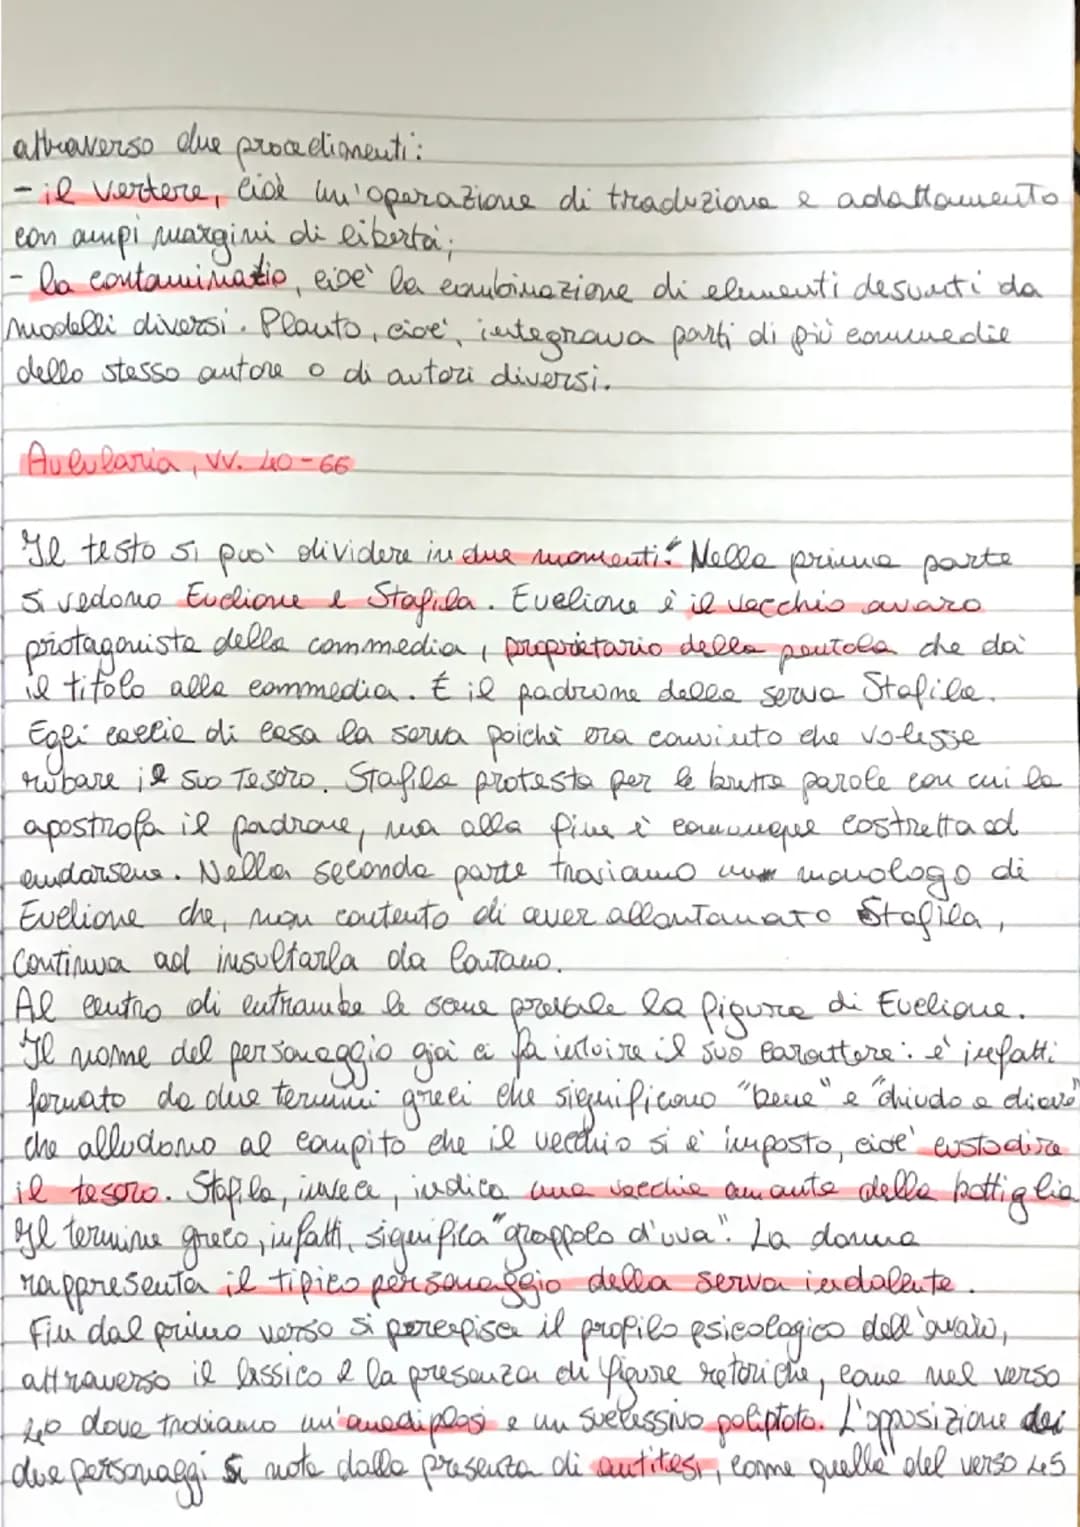 attraverso due procedimenti:
- il vertere, cioè un'operazione di traduzione e adattamento
con ampi margini di libertà;
- la contaminatio, cioè la combinazione di elementi desunti da
modelli diversi. Plauto, cioè, integrava parti di più commedie
dello stesso autore o di autori diversi.
Aulularia, vv. 40-66
Il testo si può dividere in due momenti. Nella prima parte
si vedono Euclione e Stafila. Euclione è il vecchio avaro
protagonista della commedia, proprietario della pentola che dà
il titolo alla commedia. È il padrone della serva Stafila.
Egli caccia di casa la serva poiché era convinto che volesse
rubare il suo tesoro. Stafila protesta per le brutte parole con cui la
apostrofa il padrone, ma alla fine è comunque costretta ad
andarsene. Nella seconda parte troviamo un monologo di
Euclione che, non contento di aver allontanato Stafila,
continua ad insultarla da lontano.
Al centro di entrambe le scene prevale la figura di Euclione.
Il nome del personaggio già ci fa intuire il suo carattere: è infatti
formato da due termini greci che significano "bene" e "chiudo a chiave"
che alludono al compito che il vecchio si è imposto, cioè custodire
il tesoro. Stafila, invece, indica una vecchia amante della bottiglia
Il termine greco, infatti, significa "grappolo d'uva". La donna
rappresenta il tipico personaggio della serva indolente.
Fin dal primo verso si percepisce il profilo psicologico dell'avaro,
attraverso il lessico e la presenza di figure retoriche, come nel verso
40 dove troviamo un'anadiplosi e un successivo poliptoto. L'opposizione dei
due personaggi si nota dalla presenza di antitesi, come quella del verso 45